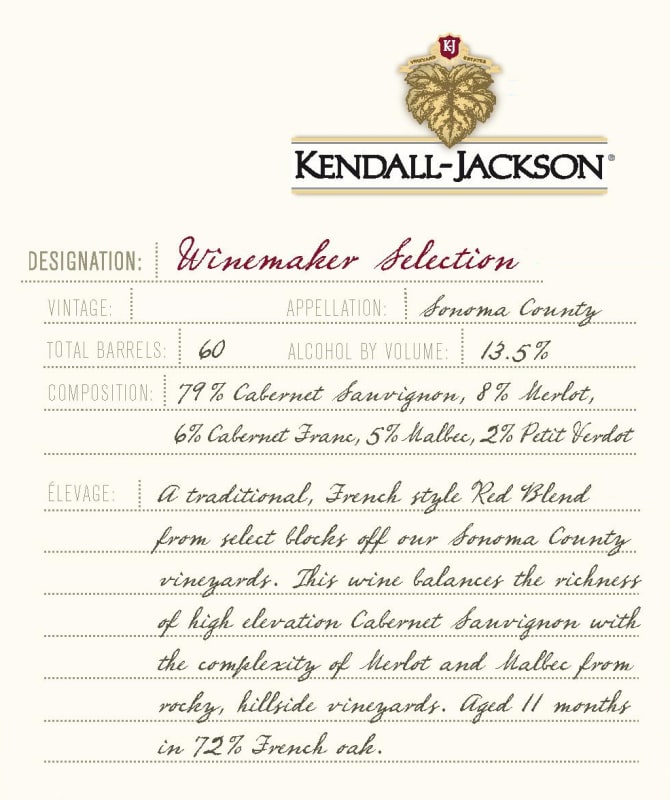 K-J
VINEYARD ESTATES
KENDALL-JACKSON®
DESIGNATION: Winemaker Selection
VINTAGE: APPELLATION: Sonoma County
TOTAL BARRELS: 60 ALCOHOL BY VOLUME: 13.5%
COMPOSITION: 79% Cabernet Sauvignon, 8% Merlot,
6% Cabernet Franc, 5% Malbec, 2% Petit Verdot
ÉLEVAGE: A traditional, French style Red Blend
from select blocks off our Sonoma County
vineyards. This wine balances the richness
of high elevation Cabernet Sauvignon with
the complexity of Merlot and Malbec from
rocky, hillside vineyards. Aged 11 months
in 72% French oak.